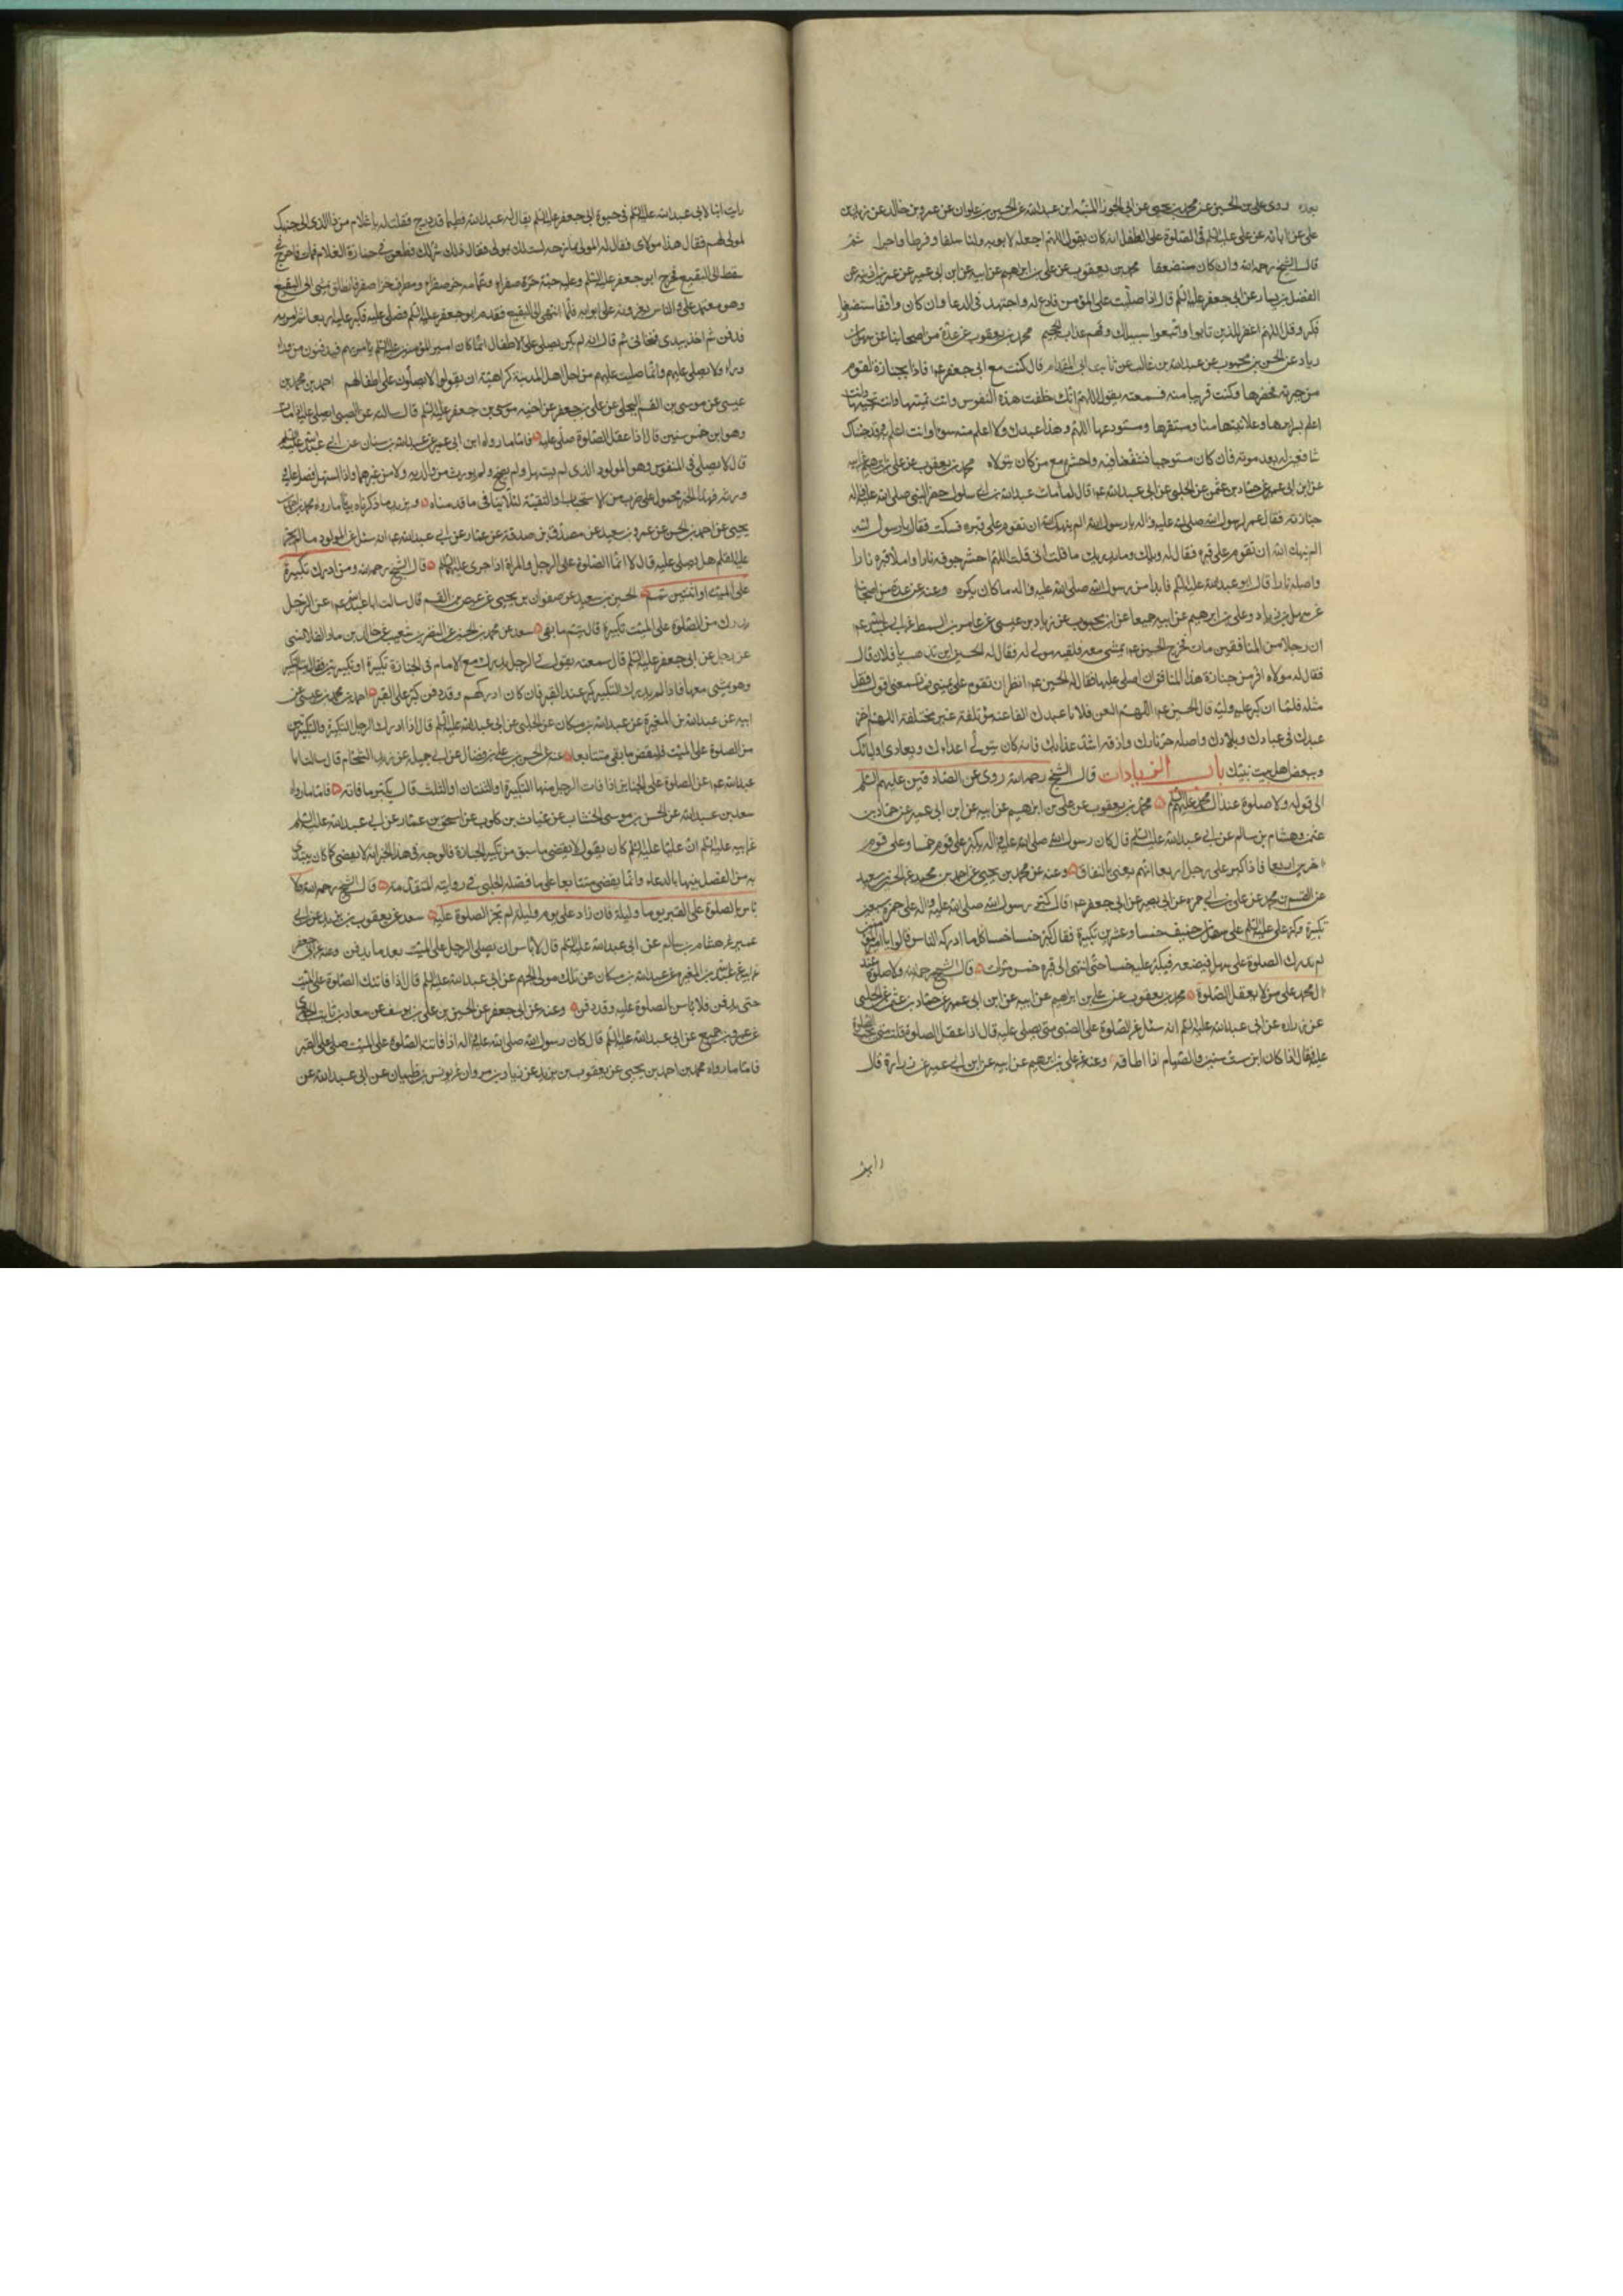 بعده روى على بن الحسين عن محمد بن يحيى عن ابى الجوزا المنبه ابن عبدالله عن الحسين بن علوان عن عمرو بن خالد عن زيد بن
على عن ابائه عن على عليه السلم فى الصلوة على الطفل انه كان يقول اللهم اجعله لابويه ولنا سلفا وفرطا واجرا ثم
قال الشيخ رحمه الله وان كان مستضعفا محمد بن يعقوب عن على بن ابرهيم عن ابيه عن ابن ابى عمير عن عمر بن اذينه عن
الفضل بن يسار عن ابى جعفر عليه السلم قال اذا صليت على المؤمن فادع له واجتهد فى الدعا وان كان واقفا مستضعفا
فكبر وقل اللهم اغفر للذين تابوا واتبعوا سبيلك وقهم عذاب الجحيم محمد بن يعقوب عن عدة من اصحابنا عن سهل بن
زياد عن الحسن بن محبوب عن عبدالله بن غالب عن ثابت ابى المقدام قال كنت مع ابى جعفر ع فاذا بجنازة لقوم
من جيرته فحضرها وكنت قريبا منه فسمعته يقول اللهم انك خلقت هذه النفوس وانت تميتها وانت تحييها وانت
اعلم بسرائرها وعلانيتها منا ومستقرها ومستودعها اللهم وهذا عبدك ولا اعلم منه سوءا وانت اعلم به وقد جئناك
شافعين له بعد موته فان كان مستوجبا فشفعنا فيه واحشره مع من كان يتولاه محمد بن يعقوب عن على بن ابرهيم عن ابيه
عن ابن ابى عمير عن حماد بن عثمن عن الحلبى عن ابى عبدالله ع قال لما مات عبدالله بن ابى سلول حضر النبى صلى الله عليه واله
جنازته فقال عمر لرسول الله صلى الله عليه واله يا رسول الله الم ينهك الله ان تقوم على قبره فسكت فقال يا رسول الله
الم ينهك الله ان تقوم على قبره فقال له ويلك وما يدريك ما قلت انى قلت اللهم احش جوفه نارا واملا قبره نارا
واصله نارا قال ابو عبدالله عليه السلم فابدا من رسول الله صلى الله عليه واله ما كان يكره وعنه عن عدة من اصحابنا
عن سهل بن زياد وعلى بن ابرهيم عن ابيه جميعا عن ابن محبوب عن زياد بن عيسى عن عامر بن السمط عن ابى عبدالله ع
ان رجلا من المنافقين مات فخرج الحسين ع يمشى معه فلقيه مولى له فقال له الحسين اين تذهب يا فلان قال
فقال له مولاه افر من جنازة هذا المنافق ان اصلى عليها فقال له الحسين ع انظر ان تقوم على يمينى فما تسمعنى اقول فقل
مثله فلما ان كبر عليه وليه قال الحسين ع اللهم العن فلانا عبدك الف لعنة مؤتلفة غير مختلفة اللهم اخز
عبدك فى عبادك وبلادك واصله حر نارك واذقه اشد عذابك فانه كان يتولى اعداءك ويعادى اوليائك
ويبغض اهل بيت نبيك باب الزيادات قال الشيخ رحمه الله روى عن الصادقين عليهم السلم
الى قوله ولا صلوة عند آل محمد عليهم السلم محمد بن يعقوب عن على بن ابرهيم عن ابيه عن ابن ابى عمير عن حماد بن
عثمن وهشام بن سالم عن ابى عبدالله عليه السلم قال كان رسول الله صلى الله عليه واله يكبر على قوم خمسا وعلى قوم
اخرين اربعا فاذا كبر على رجل اربعا اتهم يعنى بالنفاق وعنه عن محمد بن يحيى عن احمد بن محمد عن الحسين بن سعيد
عن القسم بن محمد عن على بن ابى حمزه عن ابى بصير عن ابى جعفر ع قال كبر رسول الله صلى الله عليه واله على حمزة سبعين
تكبيرة وكبر على عليه السلم على سهل بن حنيف خمسا وعشرين تكبيرة فقال كبر خمسا خمسا كلما ادركه الناس قالوا يا امير المؤمنين
لم ندرك الصلوة على سهل فيضعه فيكبر عليه خمسا حتى انتهى الى قبره خمس مرات قال الشيخ رحمه الله ولا صلوة عند
ال محمد على من لا يعقل الصلوة محمد بن يعقوب عن على بن ابراهيم عن ابيه عن ابن ابى عمير عن حماد بن عثمن عن الحلبى
عن زراره عن ابى عبدالله عليه السلم انه سئل عن الصلوة على الصبى متى يصلى عليه قال اذا عقل الصلوة قلت متى تجب الصلوة
عليه فقال اذا كان ابن ست سنين والصيام اذا اطاقه وعنه عن على بن ابرهيم عن ابيه عن ابن ابى عمير عن زرارة قال
رايت
رايت ابنا لابى عبدالله عليه السلم فى حيوة ابى جعفر عليه السلم يقال له عبدالله فطيم قد درج فقلت له يا غلام من ذا الذى الى جنبك
لمولى لهم فقال هذا مولاى فقال له المولى يمازحه لست لك بمولى فقال ذلك شر لك فطعن فى جنازة الغلام فمات فاخرج فى
سفط الى البقيع فخرج ابو جعفر عليه السلم وعليه جبة خز صفراء وعمامه خز صفراء ومطرف خز اصفر فانطلق يمشى الى البقيع
وهو معتمد على والناس يعزونه على ابن ابنه فلما انتهى الى البقيع تقدم ابو جعفر عليه السلم فصلى عليه فكبر عليه اربعا ثم امر به
فدفن ثم اخذ بيدى فتنحى بى ثم قال انه لم يكن يصلى على الاطفال انما كان امير المؤمنين عليه السلم يامر بهم فيدفنون من وراء
وراء ولا يصلى عليهم وانما صليت عليهم من اجل اهل المدينة كراهية ان يقولوا لا يصلون على اطفالهم احمد بن محمد بن
عيسى عن موسى بن القسم البجلى عن على بن جعفر عن اخيه موسى بن جعفر عليه السلم قال سالته عن الصبى ايصلى عليه اذا مات
وهو ابن خمس سنين قال اذا عقل الصلوة صلى عليه فاما ما رواه ابن ابى عمير عن عبدالله بن سنان عن ابى عبدالله عليه السلم
قال لا يصلى على المنفوس وهو المولود الذى لم يستهل ولم يصح ولم يورث من والديه ولا من غيرهما واذا استهل فصل عليه
وورثه فهذا الخبر محمول على ضرب من الاستحباب والتقية لئلا ينافى ما قدمناه ويزيد ما ذكرناه بيانا ما رواه محمد بن احمد بن
يحيى عن احمد بن الحسن عن عمرو بن سعيد عن مصدق بن صدقة عن عمار عن ابى عبدالله ع انه سئل عن المولود ما لم يجر
عليه القلم هل يصلى عليه قال لا انما الصلوة على الرجل والمراة اذا جرى عليهما القلم قال الشيخ رحمه الله ومن ادرك تكبيرة
على الميت او اثنتين تمم الحسين بن سعيد عن صفوان بن يحيى عن عيص بن القسم قال سالت ابا عبدالله ع عن الرجل
يدرك من الصلوة على الميت تكبيرة قال يتم ما بقى سعد عن محمد بن الحسين عن النضر بن شعيب عن خالد بن ماد القلانسى
عن رجل عن ابى جعفر عليه السلم قال سمعته يقول فى الرجل يدرك مع الامام فى الجنازة تكبيرة او تكبيرتين فقال يتم التكبير
وهو يمشى معها فاذا لم يدرك التكبير كبر عند القبر فان كان ادركهم وقد دفن كبر على القبر احمد بن محمد بن عيسى عن
ابيه عن عبدالله بن المغيرة عن عبدالله بن مسكان عن الحلبى عن ابى عبدالله عليه السلم قال اذا ادرك الرجل التكبيرة والتكبيرتين
من الصلوة على الميت فليقض ما بقى متتابعا عنه عن الحسن بن على بن فضال عن ابى جميلة عن زيد الشحام قال سالت ابا
عبدالله ع عن الصلوة على الجنائز اذا فات الرجل منها التكبيرة او الثنتان او الثلث قال يكبر ما فاته فاما ما رواه
سعد بن عبدالله عن الحسن بن موسى الخشاب عن غياث بن كلوب عن اسحق بن عمار عن ابى عبدالله عليه السلم
عن ابيه عليه السلم ان عليا عليه السلم كان يقول لا يقضى ما سبق من تكبير الجنازة فالوجه فى هذا الخبر انه لا يقضى كما كان يبتدى
به من الفصل بينها بالدعاء وانما يقضى متتابعا على ما فصله الحلبى فى روايته المتقدمة قال الشيخ رحمه الله ولا
باس بالصلوة على القبر يوما وليلة فان زاد على يوم وليلة لم تجز الصلوة عليه سعد عن يعقوب بن يزيد عن ابن ابى
عمير عن هشام بن سالم عن ابى عبدالله عليه السلم قال لا باس ان يصلى الرجل على الميت بعد ما يدفن وعنه عن ابى جعفر
عن ابيه عن عبدالله بن المغيره عن عبدالله بن مسكان عن مالك مولى الجهم عن ابى عبدالله عليه السلم قال اذا فاتتك الصلوة على الميت
حتى يدفن فلا باس بالصلوة عليه وقد دفن وعنه عن ابى جعفر عن الحسين بن على بن يوسف عن معاذ بن ثابت الجوهرى
عن عمرو بن جميع عن ابى عبدالله عليه السلم قال كان رسول الله صلى الله عليه واله اذا فاتته الصلوة على الميت صلى على القبر
فاما ما رواه محمد بن احمد بن يحيى عن يعقوب بن يزيد عن زياد بن مروان عن يونس بن ظبيان عن ابى عبدالله عن